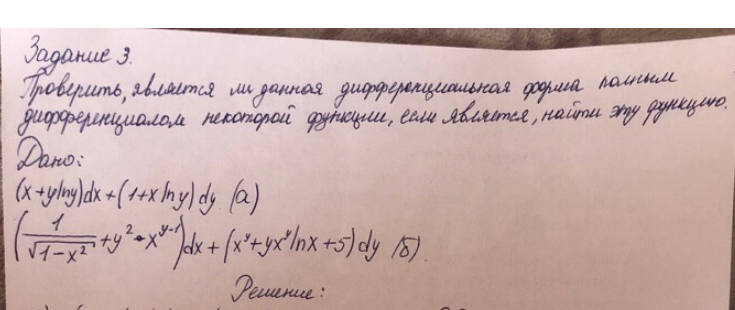 Задание 3.
Проверить, является ли данная дифференциальная форма полным
дифференциалом некоторой функции, если является, найти эту функцию.
Дано:
(x+y ln y)dx+(1+x ln y)dy. (а)
(1/√(1-x²)+y²·x^(y-1))dx+(x^y+yx^y ln x+5)dy (б).
Решение: